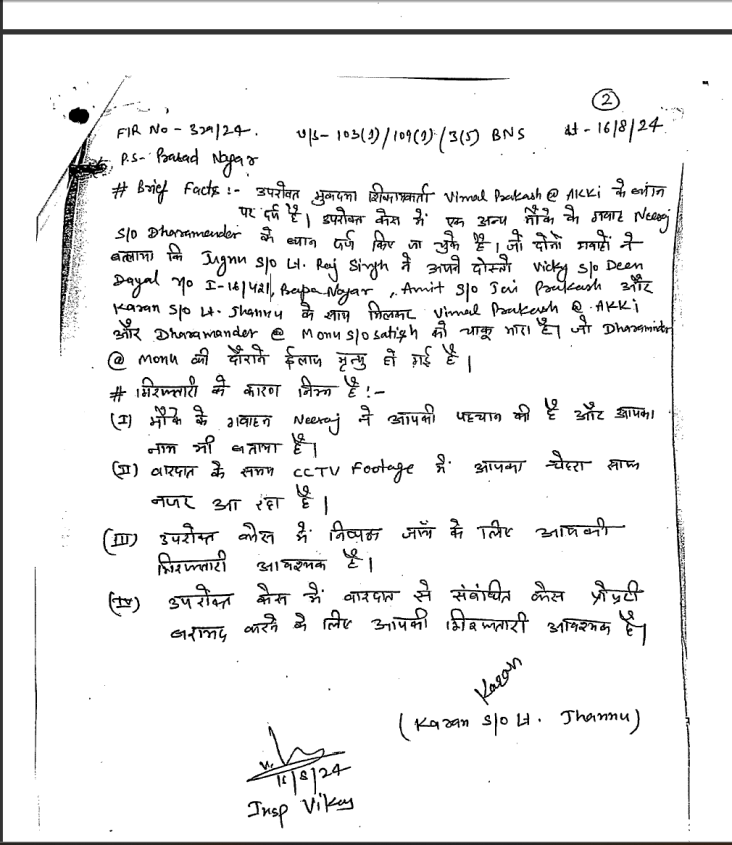 ②
FIR No - 329/24. U/S- 103(1)/109(1)/3(5) BNS dt - 16/8/24.
P.S- Prasad Nagar
# Brief Facts :- उपरोक्त मुकदमा शिकायतकर्ता Vimal Prakash @ AKKi के ब्यान
पर दर्ज है। उपरोक्त केस में एक अन्य मौके के गवाह Neeraj
S/O Dharamender के ब्यान दर्ज किए जा चुके है। जो दोनों गवाहों ने
बताया कि Jugnu S/O Lt. Raj Singh ने अपने दोस्तो Vicky S/o Deen
Dayal r/o I-16/421, Bapa Nagar, Amit S/o Jai Prakash और
Karan S/o Lt. Jhannu के साथ मिलकर Vimal Prakash @ AKKi
और Dharamander @ Monu S/o Satish को चाकू मारा है। जो Dharaminder
@ Monu की दौराने ईलाज मृत्यु हो गई है।
# गिरफ्तारी के कारण निम्न है :-
(I) मौके के गवाहन Neeraj ने आपकी पहचान की है और आपका
नाम भी बताया है।
(II) वारदात के समय CCTV Footage में आपका चेहरा साफ
नजर आ रहा है।
(III) उपरोक्त केस में निष्पक्ष जाँच के लिए आपकी
गिरफ्तारी आवश्यक है।
(IV) उपरोक्त केस में वारदात से संबंधित केस प्रौपर्टी
बरामद करने के लिए आपकी गिरफ्तारी आवश्यक है।
Karan
(Karan S/o Lt. Jhannu)
16/8/24
Insp Vikas